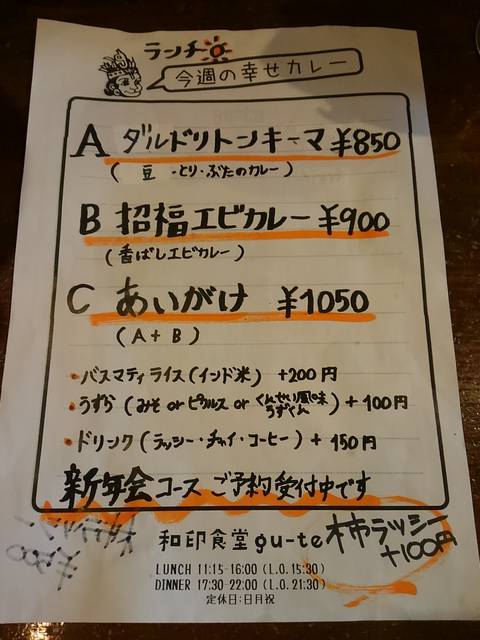 ランチ
今週の幸せカレー
A ダルドリトンキーマ ¥850
(豆・とり・ぶたのカレー)
B 招福エビカレー ¥900
(香ばしエビカレー)
C あいがけ ¥1050
(A+B)
・バスマティライス(インド米) +200円
・うずら(みそorピクルスorくんせい風味うずくん)+100円
・ドリンク(ラッシー・チャイ・コーヒー)+150円
新年会コースご予約受付中です
和印食堂gu-te
柿ラッシー
+100円
LUNCH 11:15-16:00 (L.O.15:30)
DINNER 17:30-22:00 (L.O.21:30)
定休日:日月祝